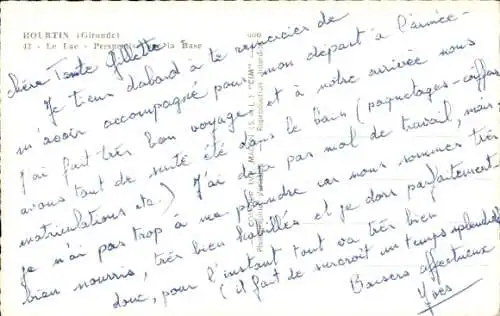 HOURTIN (Gironde)
42 - Le Lac - Perspective la Base
Chère Tante Gillette
Je tiens dabord à te remercier de
m'avoir accompagné pour mon départ à l'armée -
J'ai fait très bon voyage et à notre arrivée nous
avons tout de suite été dans le bain (paquetages - coiffeur
matriculations etc.) J'ai déjà pas mal de travail, mais
je n'ai pas trop à me plaindre car nous sommes très
bien nourris, très bien habillés et je dors parfaitement -
donc, pour l'instant tout va très bien
(il fait de surcroit un temps splendide
Baisers affectueux
Yves